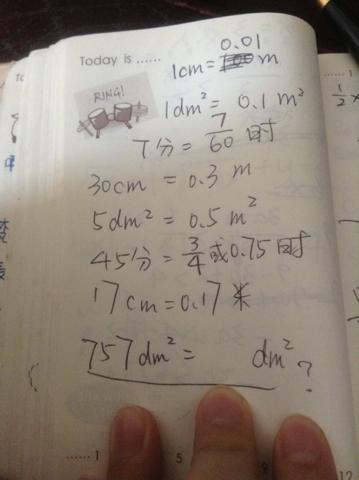 Today is ......
0.01
1cm = m
RING!
1dm² = 0.1 m²
7分 = 7/60 时
30cm = 0.3 m
5dm² = 0.5 m²
45分 = 3/4 或 0.75 时
17cm = 0.17 米
757dm² = dm² ?
...... 1 5 9 12